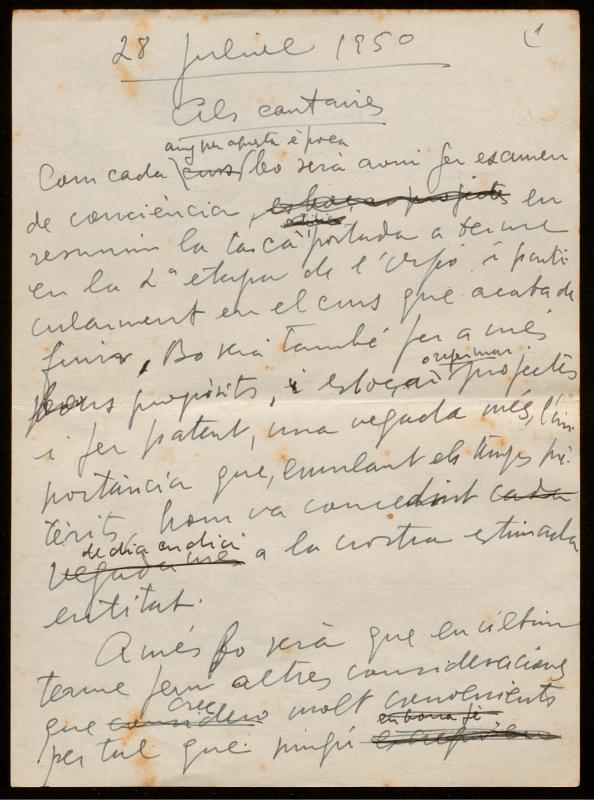 28 juliol 1950
1
Als cantaires
any per aquesta època
Com cada curs bo serà avui fer examen
de conciència, esbossar projectes en
resumin la tasca portada a terme
en la 2ª etapa de l'Orfó i parti
cularment en el curs que acaba de
finir. Bo serà també fer a més
o refermar
bons propòsits, i esboçar projectes
i fer patent, una vegada més, l'im
portància que, emulant els temps pre
tèrits, hom va concedint cada
de dia en dia
vegada més a la nostra estimada
entitat.
A més bo serà que en últim
terme fem altres consideracions
crec
que considero molt convenients
en bona fè
per tal que ningú